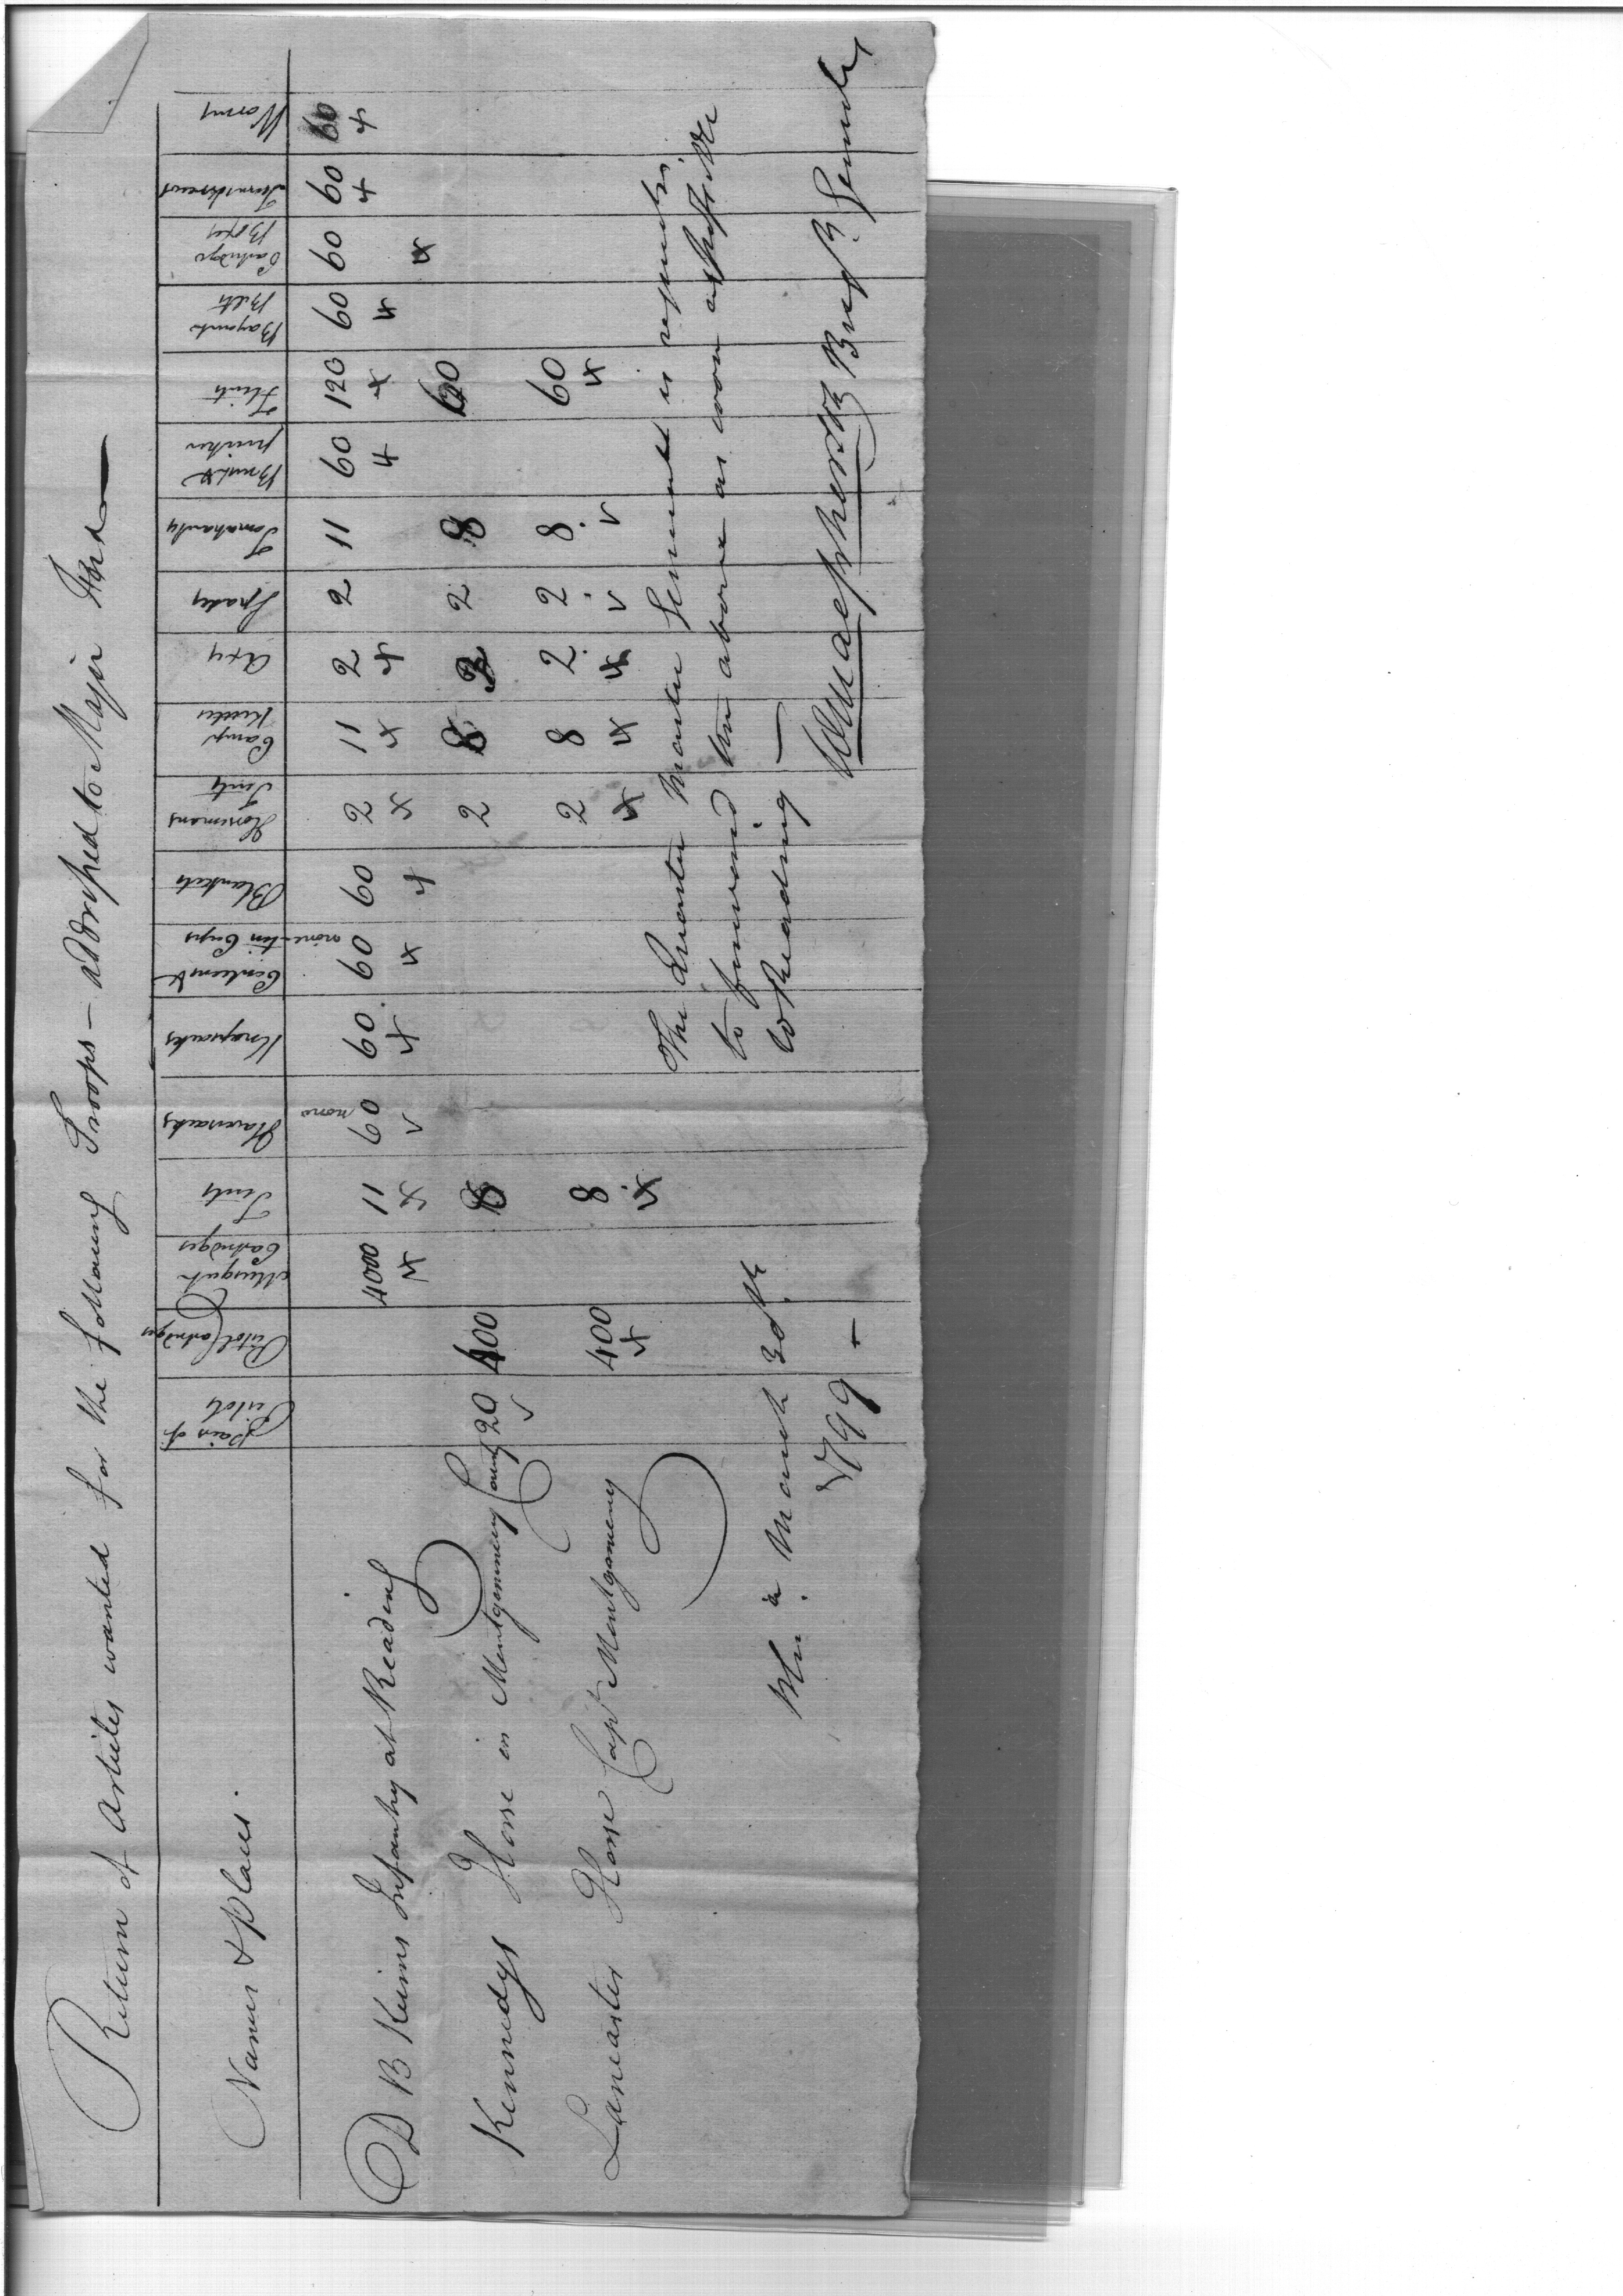 Return of Articles wanted for the following Troops – addressed to Major
Names & places. | pair of Pistols | Pistol Cartridges | Musquet Cartridges | Tents | Haversacks | Knapsacks | Canteens & tin Cups | Blankets | Horsemans Tents | Camp Kettles | Axes | Spades | Tomahawks | Brush & pricker | Flints | Bayonets Belts | Cartridge Boxes | Turnscrews | Worms
D B Keims Infantry at Reading | | | 4000 x | 11 x | none 60 v | 60 x | none 60 x | 60 x | 2 x | 11 x | 2 x | 2 | 11 | 60 x | 120 x | 60 x | 60 x | 60 x | 60 x
Kennedys Horse in Montgomery County | 20 v | 400 | | 8 | | | | | 2 | 8 | 2 | 2 | 8 | | 60
Lancaster Horse Capt Montgomery | | 400 x | | 8 x | | | | | 2 x | 8 x | 2 x | 2 v | 8 v | | 60 x
The Quarter Master General is requested
to forward the above as soon as
to Reading —
Phi.a March 30th
1799 –
W Macpherson Brig. General